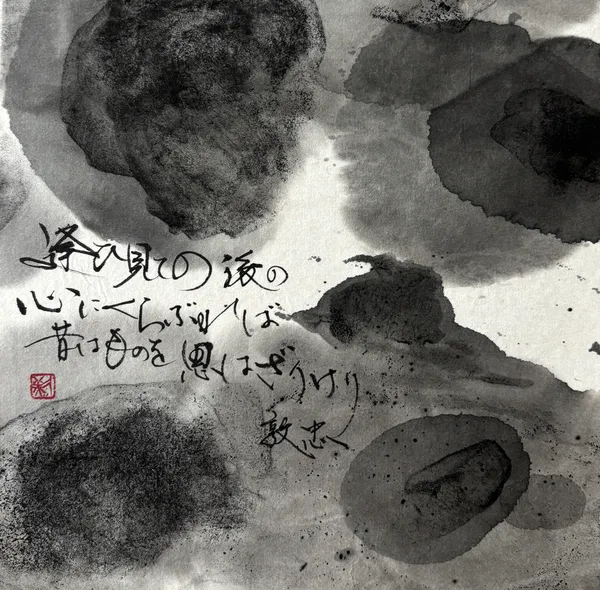 逢ひ見ての後の
心にくらぶれば
昔はものを思はざりけり
敦忠